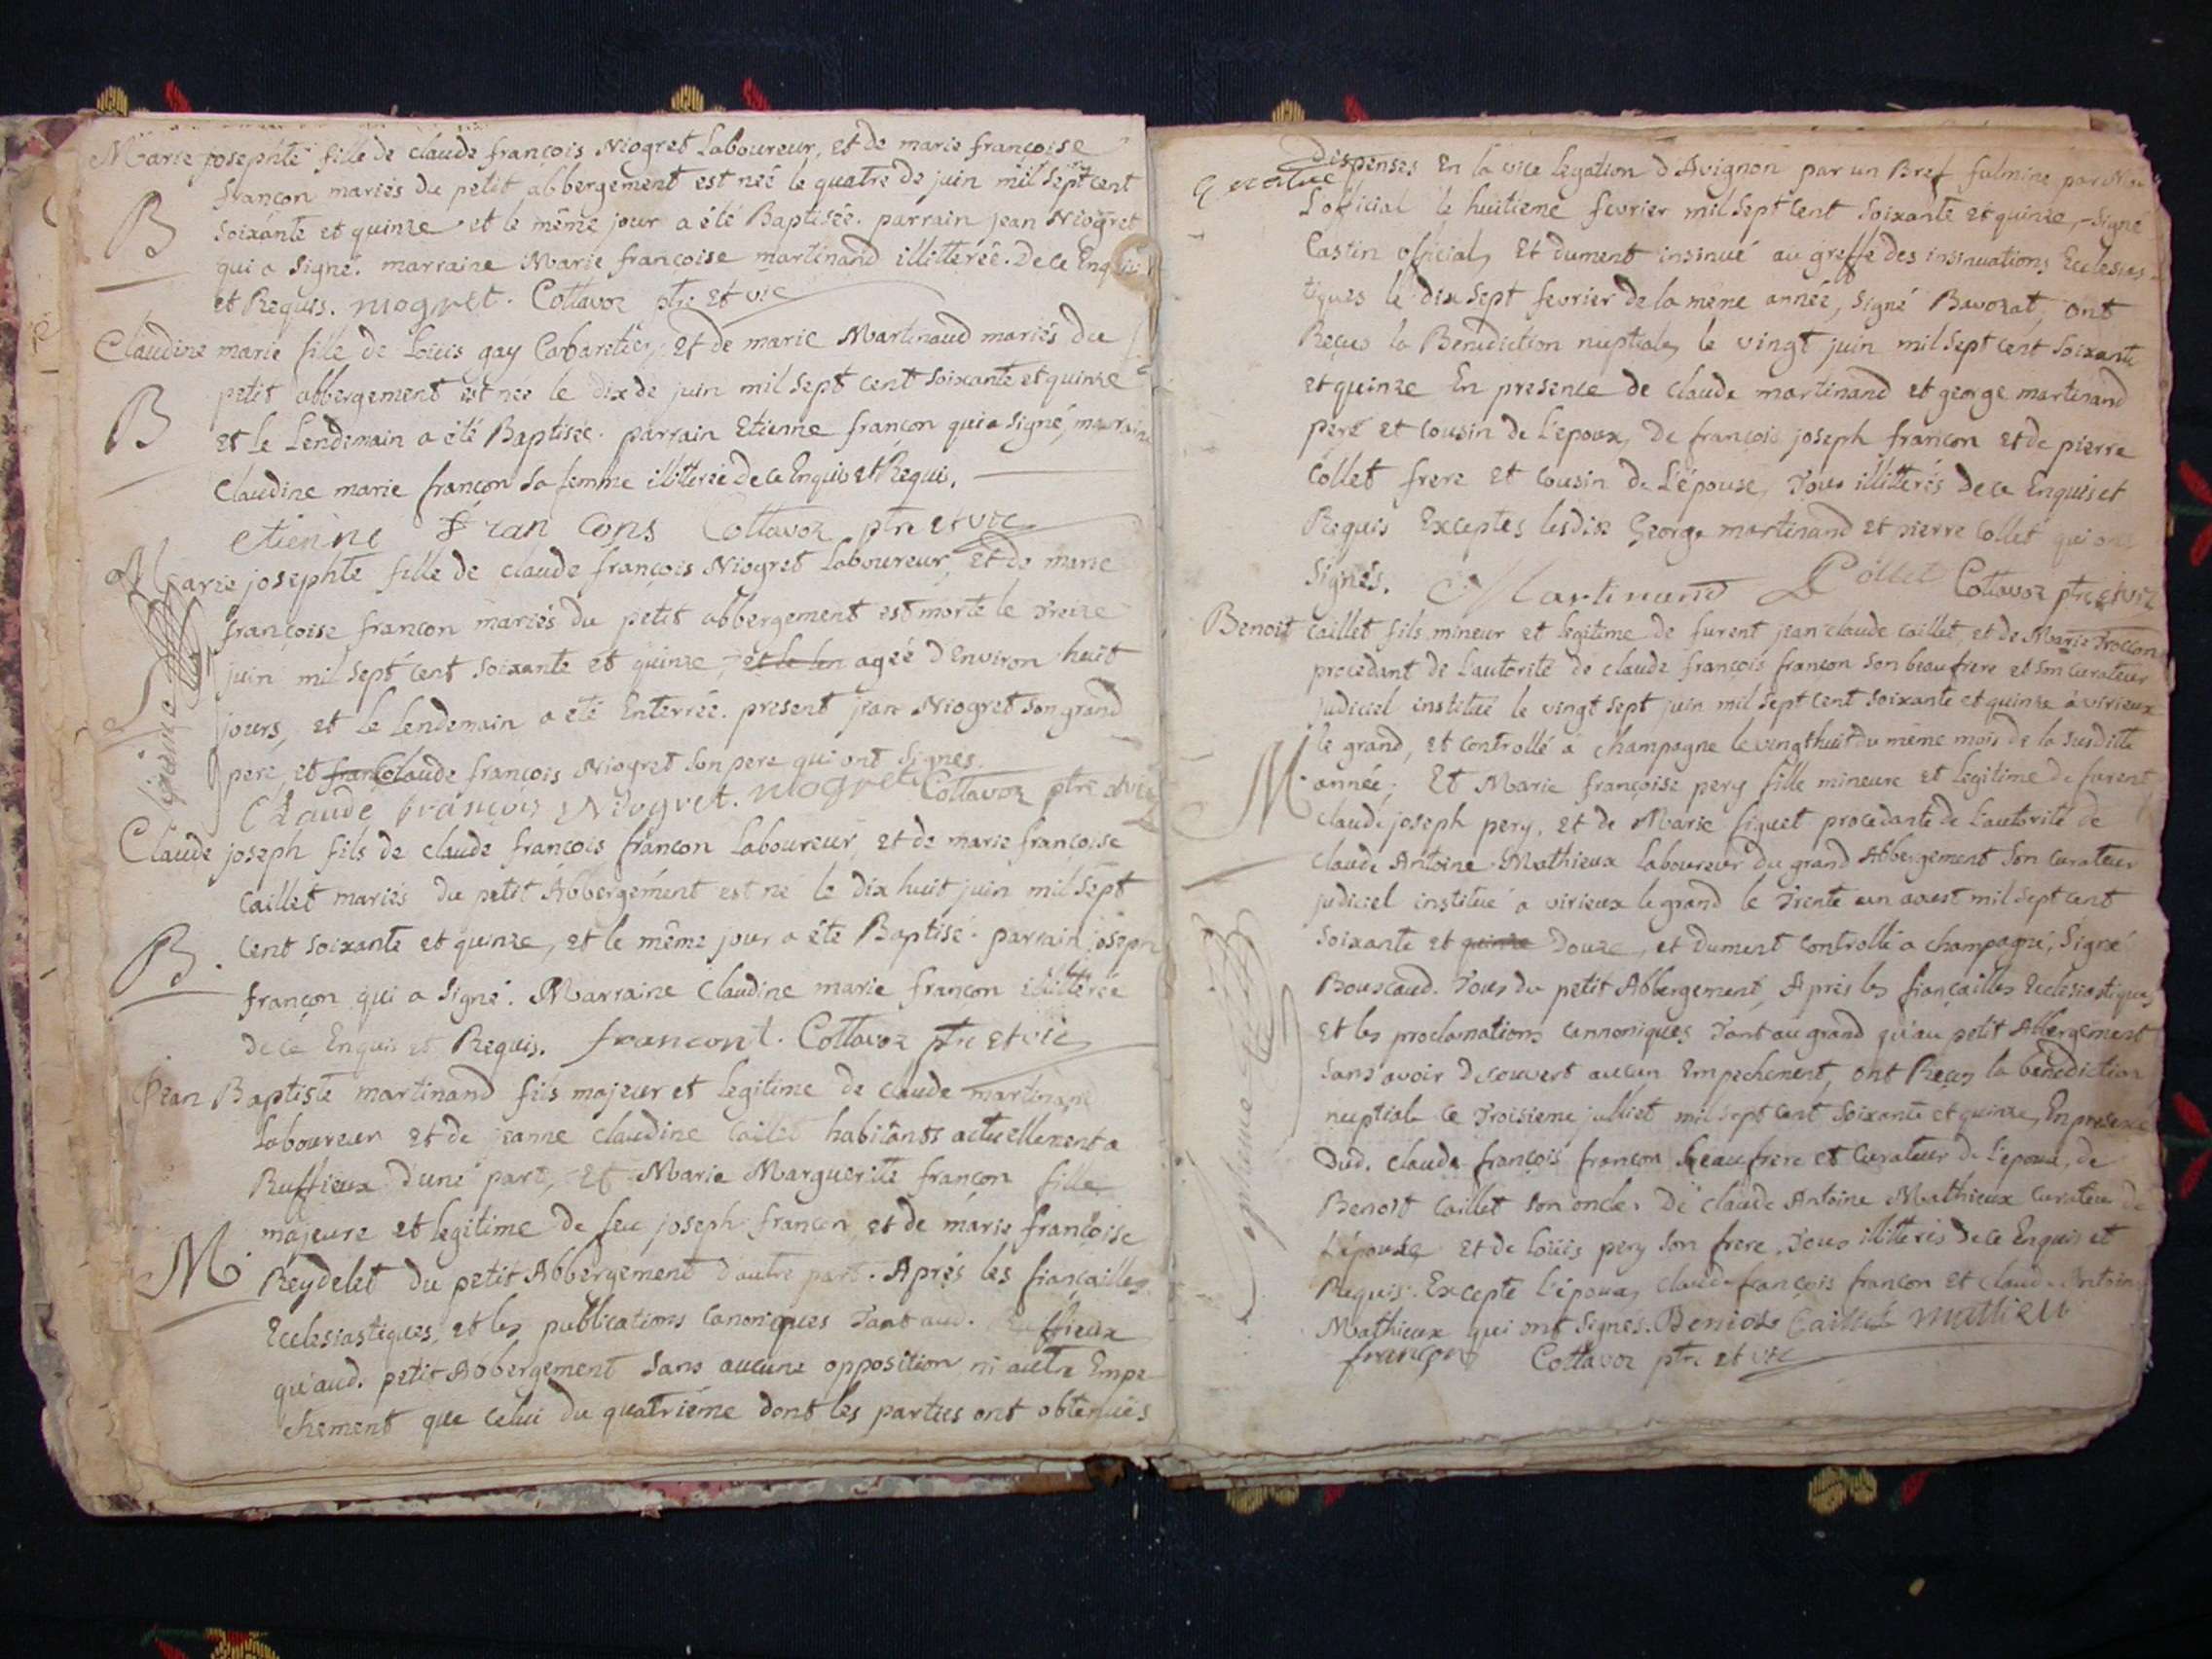 Marie josephte fille de claude françois Niogret Laboureur, et de marie françoise
françon mariés du petit abbergement est neé le quatre de juin mil sept cent
B
soixante et quinze et le même jour a été Baptisée. parrain jean Niogret
qui a signé. marraine Marie françoise martinand illitterée. De ce Enquis
et Requis. niogret. Cottavoz ptre et vic
Claudine marie fille de Loüis gay Cabaretier, et de marie Martinaud mariés du
petit abbergement est neé le dix de juin mil sept cent soixante et quinze
B
et le Lendemain a été Baptisée. parrain Etienne françon qui a signé, marraine
Claudine marie françon sa femme illitterée De ce Enquis et Requis.
etienne fran cons Cottavoz ptre et vic
Marie josephte fille de claude françois Niogret Laboureur, et de marie
françoise françon mariés du petit abbergement est morte le treize
juin mil sept cent soixante et quinze, et le len ageé d'Environ huit
jours, et le lendemain a eté Enterrée. present jean Niogret son grand
pere, et fran Claude françois Niogret son pere qui ont signes.
Claude françois Niogret. niogret Cottavoz ptre et vic
Claude joseph fils de claude françois françon Laboureur, et de marie françoise
Caillet mariés du petit Abbergement est né le dix huit juin mil sept
B.
cent soixante et quinze, et le même jour a ete Baptisé. parrain joseph
françon qui a signé. Marraine Claudine marie françon illitterée
de ce Enquis et Requis. francont. Cottavoz ptre et vic
Jean Baptiste martinand fils majeur et legitime de Claude martinand
Laboureur et de jeanne Claudine Caillet habitants actuellement a
Ruffieux d'une part, et Marie Marguerite françon fille
majeure et legitime de feu joseph françon et de marie françoise
M.
Reydelet du petit Abbergement d'autre part. Aprés les fiançailles
Ecclesiastiques, et les publications canoniques tant aud. Ruffieux
qu'aud. petit Abbergement sans aucune opposition ni autre Empe
chement que celui du quatriéme dont les parties ont obtenües
dispenses En la vice legation d'Avignon par un Bref fulminé par
L'official le huitieme fevrier mil sept cent soixante et quinze, signé
Castin official, Et dument insinué au greffe des insinuations Ecclesias-
tiques le dix sept fevrier de la même année, signé Bavozat, ont
Reçus la Benediction nuptiale, le vingt juin mil sept cent soixante
et quinze En presence de Claude martinand et george martinand
pere et cousin de L'epoux, de françois joseph françon et de pierre
Collet frere et cousin de L'épouse, Tous illitterés de ce Enquis et
Requis Exceptés lesdits George martinand et pierre Collet qui ont
signés. Martinand P Collet Cottavoz ptre et vic
Benoit Caillet fils mineur et legitime de furent jean claude Caillet, et de Marie
procedant de L'autorité de claude françois françon son beau frere et son curateur
judiciel institué le vingt sept juin mil sept cent soixante et quinze à virieux
le grand, et controllé à champagne le vingt huit du même mois de la susditte
M.
année; Et Marie françoise pery fille mineure et legitime de furent
Claude joseph pery, et de Marie figuet procedante de L'autorité de
Claude Antoine Mathieux Laboureur du grand Abbergement son curateur
judiciel institué a virieux le grand le trente un aoust mil sept cent
soixante et quinze douze, et dument controllé a champagne, signé
Bouscaud. Tous du petit Abbergement, Après les fiançailles Ecclesiastiques
et les proclamations cannoniques tant au grand qu'au petit Abbergement
sans avoir decouvert aucun Empechement, ont Reçus la bénédiction
nuptiale ce troisieme juillet mil sept cent soixante et quinze, En presence
Dud. Claude françois françon beaufrere et curateur de L'epoux, de
Benoit Caillet son oncle. De claude Antoine Mathieux curateur de
L'épouse et de Loüis pery son frere, Tous illitterés de ce Enquis et
Requis. Excepté l'époux, Claude françois françon et Claude Antoine
Mathieux qui ont signés. Benoit Caillet mattieu
françon Cottavoz ptre et vic